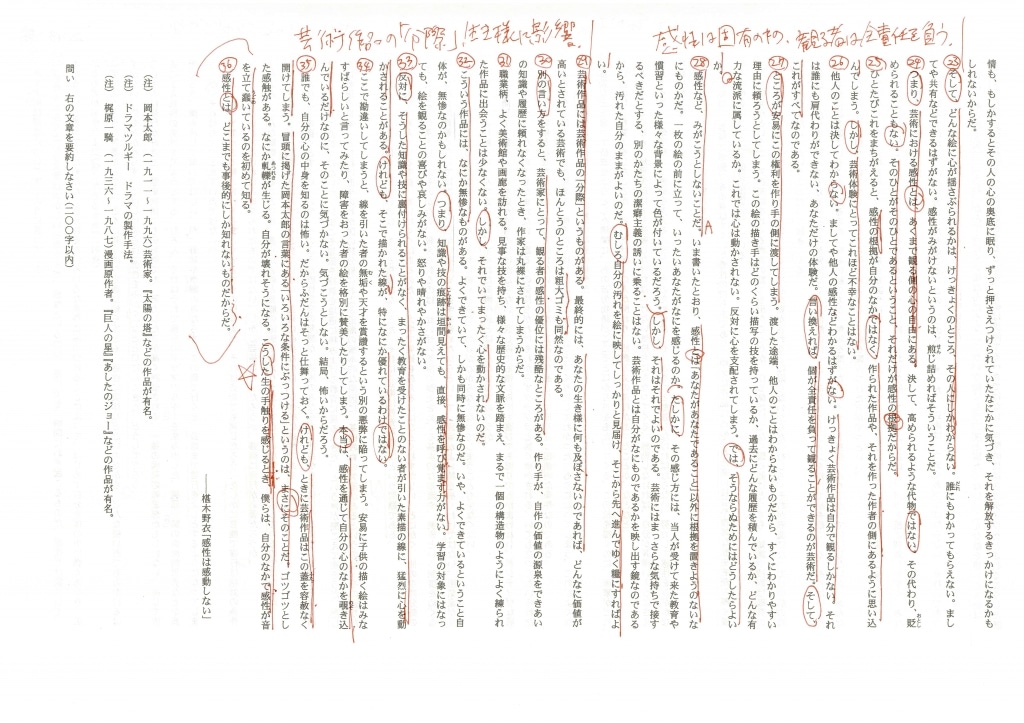 感性は固有のもの、観る者は全責任を負う。
芸術作品の「分際」生き様に影響。
情も、もしかするとその人の心の奥底に眠り、ずっと押さえつけられていたなにかに気づき、それを解放するきっかけになるかも
しれないからだ。
㉓そして、どんな絵に心が揺さぶられるかは、けっきょくのところ、その人にしかわからない。誰にもわかってもらえない。まし
てや共有などできるはずがない。感性がみがけないというのは、煎じ詰めればそういうことだ。
㉔つまり、芸術における感性とは、あくまで観る側の心の自由にある。決して、高められるような代物ではない。その代わり、貶
められることもない。そのひとがそのひとであるということ、それだけが感性の根拠だからだ。
㉕ひとたびこれをまちがえると、感性の根拠が自分のなかではなく、作られた作品や、それを作った作者の側にあるように思い込
んでしまう。しかし、芸術体験にとってこれほど不幸なことはない。
㉖他人のことは決してわからない。ましてや他人の感性などわかるはずがない。けっきょく芸術作品は自分で観るしかない。それ
は誰にも肩代わりができない、あなただけの体験だ。言い換えれば、個が全責任を負って観ることができるのが芸術だ。そして、
これがすべてなのである。
㉗ところが安易にこの権利を作り手の側に渡してしまう。渡した途端、他人のことはわからないものだから、すぐにわかりやすい
理由に頼ろうとしてしまう。この絵の描き手はどのくらい描写の技を持っているか、過去にどんな履歴を積んでいるか、どんな有
力な流派に属しているか。これでは心は動かされない。反対に心を支配されてしまう。では、そうならぬためにはどうしたらよい
か。
㉘感性など、みがこうとしないことだ。いま書いたとおり、感性とは「あなたがあなたであること」以外に根拠を置きようのないな
にものかだ。一枚の絵の前に立って、いったいあなたがなにを感じるのか。たしかに、その感じ方には、当人が受けて来た教育や
慣習といった様々な背景によって色が付いているだろう。しかし、それはそれでよいのである。芸術にはまっさらな気持ちで接す
るべきだとする、別のかたちの潔癖主義の誘いに乗ることはない。芸術作品とは自分がなにものであるかを映し出す鏡なのである
から、汚れた自分のままがよいのだ。むしろ自分の汚れを絵に映してしっかりと見届け、そこから先へ進んでゆく糧にすればよ
い。
㉙芸術作品には芸術作品の「分際」というものがある。最終的には、あなたの生き様に何も及ぼさないのであれば、どんなに価値が
高いとされている芸術でも、ほんとうのところは粗大ゴミも同然なのである。
㉚別の言い方をすると、芸術家にとって、観る者の感性の優位には残酷なところがある。作り手が、自作の価値の源泉をできあい
の知識や履歴に頼れなくなったとき、作家は丸裸にされてしまうからだ。
㉛職業柄、よく美術館や画廊を訪れる。見事な技を持ち、様々な歴史的な文脈を踏まえ、まるで一個の構造物のようによく練られ
た作品に出会うことは少なくない。しかし、それでいてまったく心を動かされないのだ。
㉜こういう作品には、なにか無惨なものがある。よくできていて、しかも同時に無惨なのだ。いや、よくできているということ自
体が、無惨なのかもしれない。つまり、知識や技の痕跡は垣間見えても、直接、感性を呼び覚ます力がない。学習の対象にはなっ
ても、絵を観ることの喜びや哀しみがない。怒りや晴れやかさがない。
㉝反対に、そうした知識や技に裏付けられることがなく、まったく教育を受けたことのない者が引いた素描の線に、猛烈に心を動
かされることがある。けれども、そこで描かれた線が、特になにか優れているわけではない。
㉞ここで勘違いしてしまうと、線を引いた者の無垢や天才を賞讃するという別の悪弊に陥ってしまう。安易に子供の描く絵はみな
すばらしいと言ってみたり、障害をおった者の絵を格別に賛美したりしてしまう。本当は、感性を通じて自分の心のなかを覗き込
んでいるだけなのに、そのことに気づかない。気づこうとしない。結局、怖いからだろう。
㉟誰でも、自分の心の中身を知るのは怖い。だからふだんはそっと仕舞っておく。けれども、ときに芸術作品はこの蓋を容赦なく
開けてしまう。冒頭に掲げた岡本太郎の言葉にある「いろいろな条件にぶっつける」というのは、まさにそのことだ。ゴツゴツとし
た感触がある。なにか軋轢が生じる。自分が壊れそうになる。こうした生の手触りを感じるとき、僕らは、自分のなかで感性が音
を立てて蠢いているのを初めて知る。
㊱感性とは、どこまでも事後的にしか知れないものだからだ。
――椹木野衣「感性は感動しない」
(注)　岡本太郎　(一九一一~一九九六)芸術家。『太陽の塔』などの作品が有名。
(注)　ドラマツルギー　ドラマの製作手法。
(注)　梶原一騎　(一九三六~一九八七)漫画原作者。『巨人の星』『あしたのジョー』などの作品が有名。
問い　右の文章を要約しなさい(二〇〇字以内)